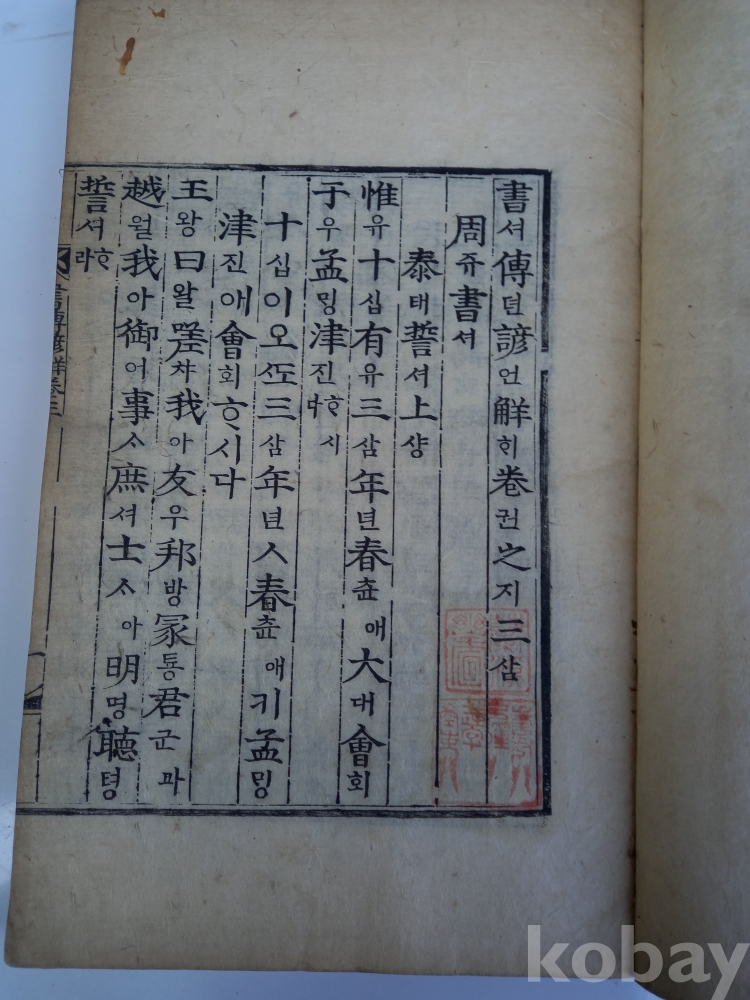 書셔傳뎐諺언觧ᄒᆡ卷권之지三삼
周쥬書셔
泰태誓셔上샹
惟유十십有유三삼年년春츈애大대會회
于우孟ᄆᆡᆼ津진ᄒᆞ시다
十십이오ᄯᅩ三삼年년ㅅ春츈애기孟ᄆᆡᆼ
津진애會회ᄒᆞ시다
王왕曰왈嗟챠我아友우邦방冡통君군과
越월我아御어事ᄉᆞ庶셔士ᄉᆞ아明명聽텽
誓셔ᄒᆞ라
書傳諺觧卷三
kobay